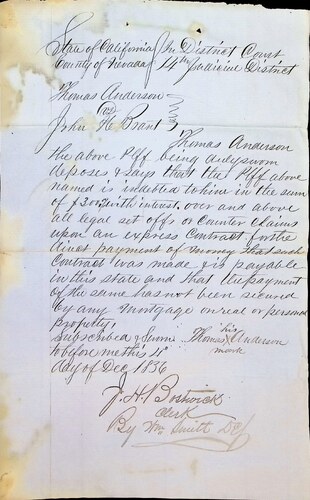 State of California } In District Court
County of Nevada } 14th Judicial District
Thomas Anderson
vs
John H Brant
Thomas Anderson
the above Plff being duly sworn
deposes & says that the Plff above
named is indebted to him in the sum
of $200 with interest over and above
all legal set offs or counter claims
upon an express Contract for the
direct payment of money that such
Contract was made & is payable
in this state and that the payment
of the same has not been secured
by any mortgage on real or personal
Property,
Subscribed & Sworn Thomas his Anderson
to before me this 11th mark
day of Dec 1856
J. H. Bostwick
Clerk
By Wm Smith D C